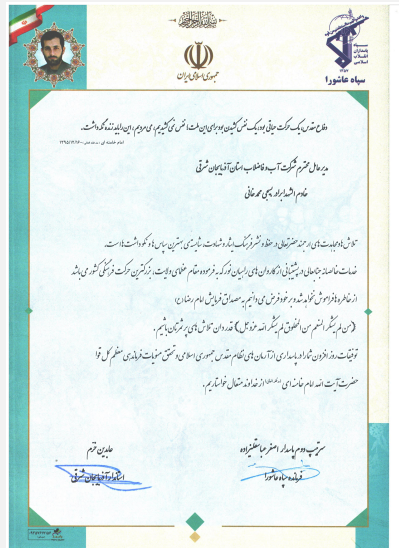 بسم الله الرحمن الرحیم
سپاه
پاسداران
انقلاب
اسلامی
سپاه عاشورا
جمهوری اسلامی ایران
دفاع مقدس، یک حرکت حیاتی بود، یک نفس کشیدن بود برای این ملت؛ نفس نمی کشیدیم، می مردیم، این را باید زنده نگه داشت.
امام خامنه ای ۱۳۹۵/۱۲/۱۶
مدیرعامل محترم شرکت آب و فاضلاب استان آذربایجان شرقی
خادم الشهدا برادر محمدخانی
تلاش ها و مجاهدت های ارجمند حضرتعالی در حفظ و نشر فرهنگ ایثار و شهادت، شایسته ی بهترین سپاس ها و نکوداشت هاست.
خدمات خالصانه جنابعالی در پشتیبانی از کاروان های راهیان نور که به فرموده مقام عظمای ولایت، بزرگترین حرکت فرهنگی کشور می باشد
از خاطره ها فراموش نخواهد شد و بر خود فرض می دانیم به مصداق فرمایش امام رضا (ع)
(من لم یشکر المنعم من المخلوق لم یشکر الله عزوجل) قدردان تلاش های پرثمرتان باشیم.
توفیقات روز افزون شما را در پاسداری از آرمان های نظام مقدس جمهوری اسلامی و تحقق منویات فرماندهی معظم کل قوا
حضرت آیت الله امام خامنه ای از خداوند متعال خواستاریم.
سرتیپ دوم پاسدار اصغر عباسقلیزاده
فرمانده سپاه عاشورا
عابدین خرم
استاندار آذربایجان شرقی